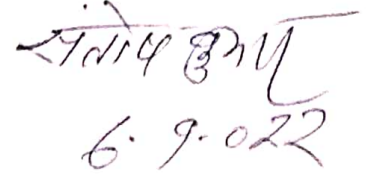 संतोष कुमार
6.9.022